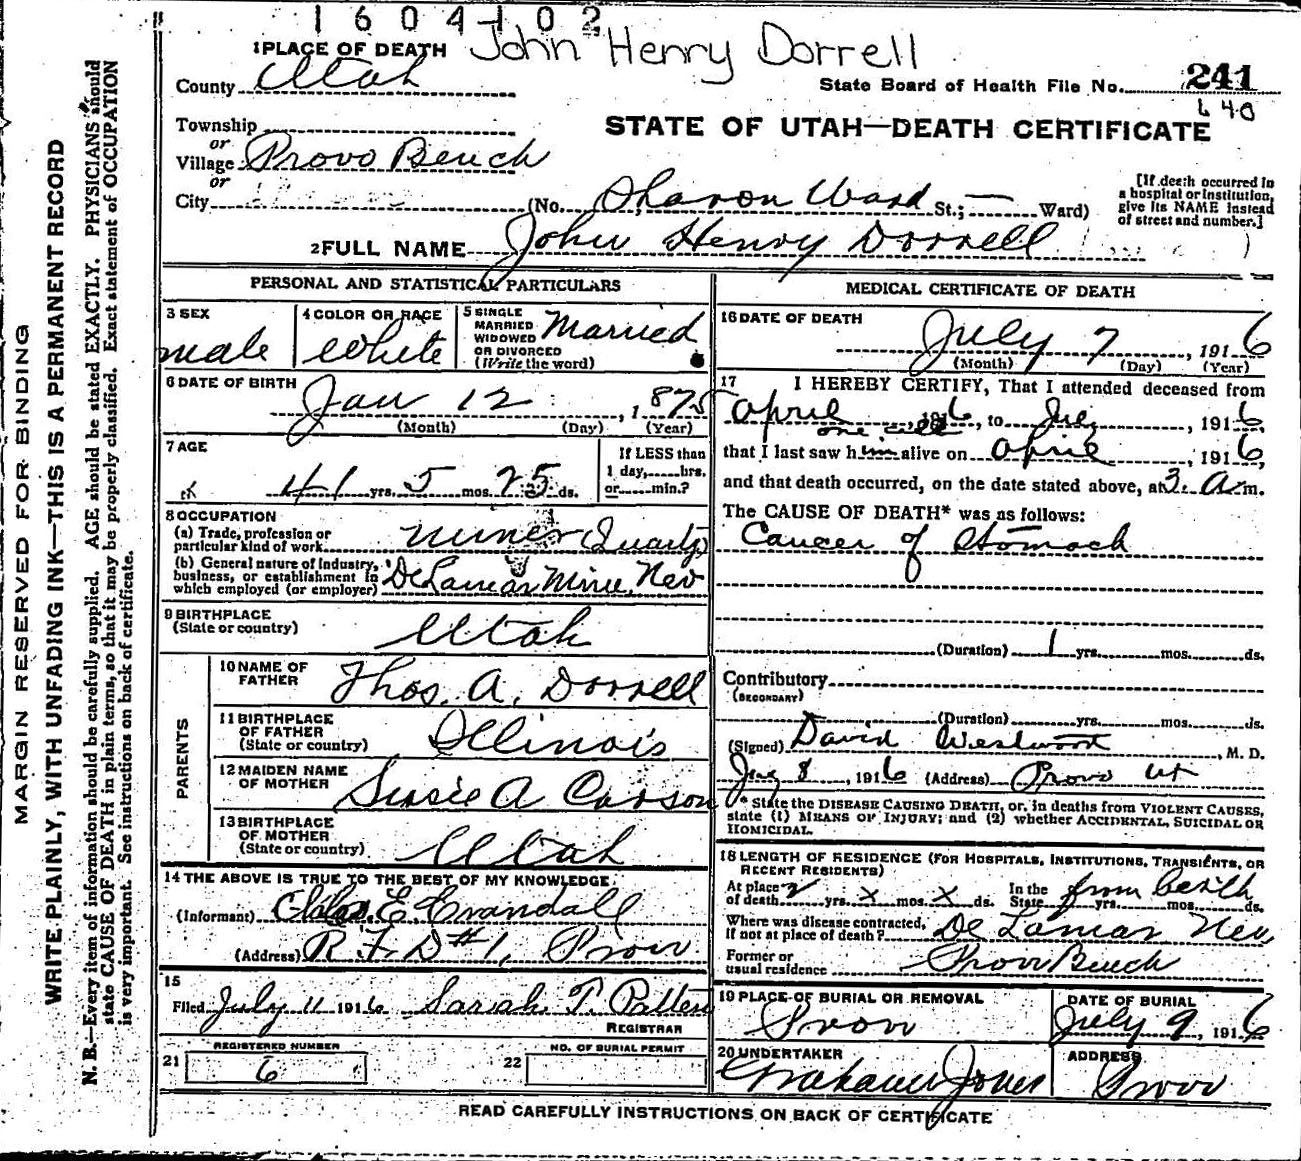 1604102
1 PLACE OF DEATH John Henry Dorrell
County Utah
State Board of Health File No. 241
640
Township
or
Village Provo Bench
or
City
STATE OF UTAH—DEATH CERTIFICATE
(No. Sharon Ward St.; — Ward)
[If death occurred in
a hospital or institution,
give its NAME instead
of street and number.]
2 FULL NAME John Henry Dorrell
PERSONAL AND STATISTICAL PARTICULARS
3 SEX
male
4 COLOR OR RACE
White
5 SINGLE
MARRIED
WIDOWED
OR DIVORCED
(Write the word)
Married
6 DATE OF BIRTH
Jan 12, 1875
(Month) (Day) (Year)
7 AGE
41 yrs. 5 mos. 25 ds.
If LESS than
1 day, hrs.
or min.?
8 OCCUPATION
(a) Trade, profession or
particular kind of work
miner (Quartz)
(b) General nature of Industry,
business, or establishment in
which employed (or employer)
DeLamar Mine, Nev
9 BIRTHPLACE
(State or country)
Utah
PARENTS
10 NAME OF
FATHER
Thos. A. Dorrell
11 BIRTHPLACE
OF FATHER
(State or country)
Illinois
12 MAIDEN NAME
OF MOTHER
Susie A Carson
13 BIRTHPLACE
OF MOTHER
(State or country)
Utah
14 THE ABOVE IS TRUE TO THE BEST OF MY KNOWLEDGE
(Informant) E. Crandall
(Address) R.F.D #1, Provo
15
Filed July 11 1916 Sarah T. Patten
REGISTRAR
21
REGISTERED NUMBER
6
22
NO. OF BURIAL PERMIT
MEDICAL CERTIFICATE OF DEATH
16 DATE OF DEATH
July 7, 1916
(Month) (Day) (Year)
17 I HEREBY CERTIFY, That I attended deceased from
April, 1916, to 1916,
one call
that I last saw him alive on April, 1916,
and that death occurred, on the date stated above, at 3. a m.
The CAUSE OF DEATH* was as follows:
Cancer of Stomach
(Duration) 1 yrs. mos. ds.
Contributory
(SECONDARY)
(Duration) yrs. mos. ds.
(Signed) David Westwood, M. D.
8, 1916 (Address) Provo Ut
* State the DISEASE CAUSING DEATH, or, in deaths from VIOLENT CAUSES,
state (1) MEANS OF INJURY; and (2) whether ACCIDENTAL, SUICIDAL OR
HOMICIDAL.
18 LENGTH OF RESIDENCE (FOR HOSPITALS, INSTITUTIONS, TRANSIENTS, OR
RECENT RESIDENTS)
At place
of death yrs. x mos. x ds.
In the
State from birth yrs. mos. ds.
Where was disease contracted,
If not at place of death?
De Lamar Nev,
Former or
usual residence
Provo Bench
19 PLACE OF BURIAL OR REMOVAL
Provo
DATE OF BURIAL
July 9, 1916
20 UNDERTAKER
Graham Jones
ADDRESS
Provo
READ CAREFULLY INSTRUCTIONS ON BACK OF CERTIFICATE
MARGIN RESERVED FOR BINDING
WRITE PLAINLY, WITH UNFADING INK—THIS IS A PERMANENT RECORD
N. B.—Every item of information should be carefully supplied. AGE should be stated EXACTLY. PHYSICIANS should
state CAUSE OF DEATH in plain terms, so that it may be properly classified. Exact statement of OCCUPATION
is very important. See instructions on back of certificate.